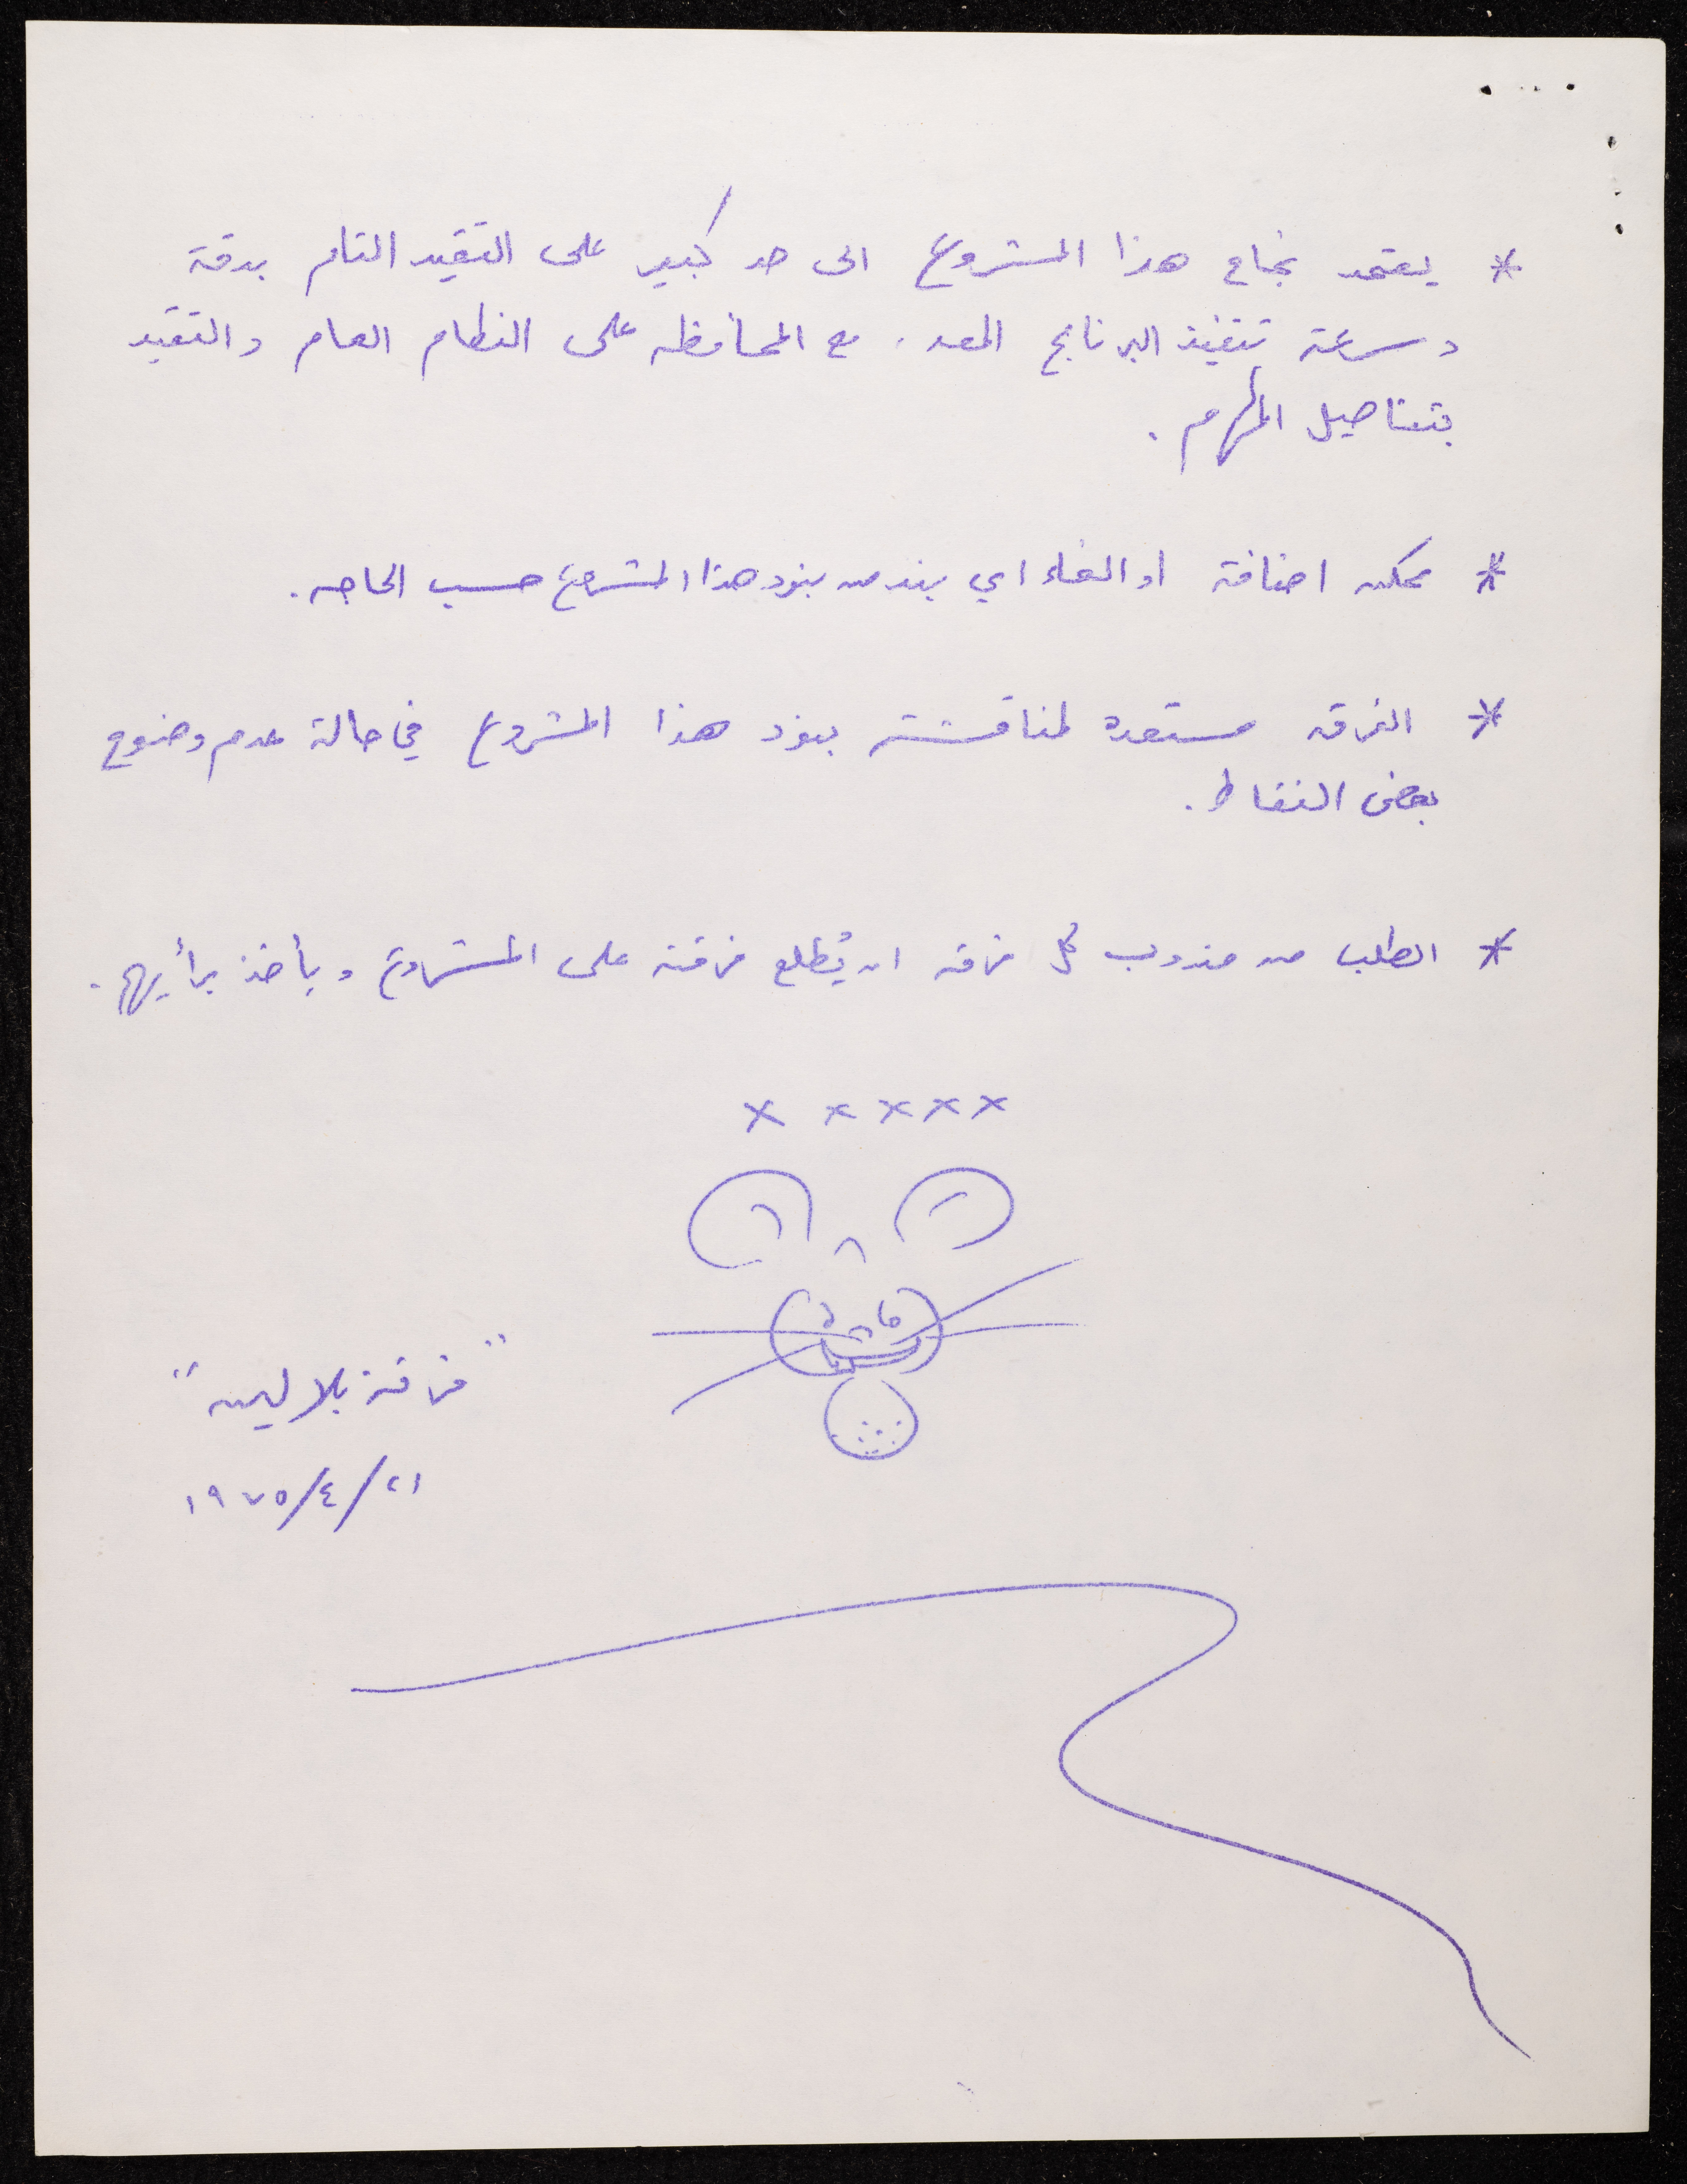 * يعتمد نجاح هذا المشروع الى حد كبير على التقيد التام بدقة
وسرعة تنفيذ البرنامج المعد، مع المحافظه على النظام العام والتقيد
بتفاصيل المهام.
* يمكن اضافة او الغاء اي بند من بنود هذا المشروع حسب الحاجه.
* الفرقه مستعده لمناقشة بنود هذا المشروع في حالة عدم وضوح
بعض النقاط.
* الطلب من مندوب كل فرقه ان يُطلع فرقته على المشروع ويأخذ برأيها.
× × × × ×
"فرقة بلالين"
٢١/٤/١٩٧٥